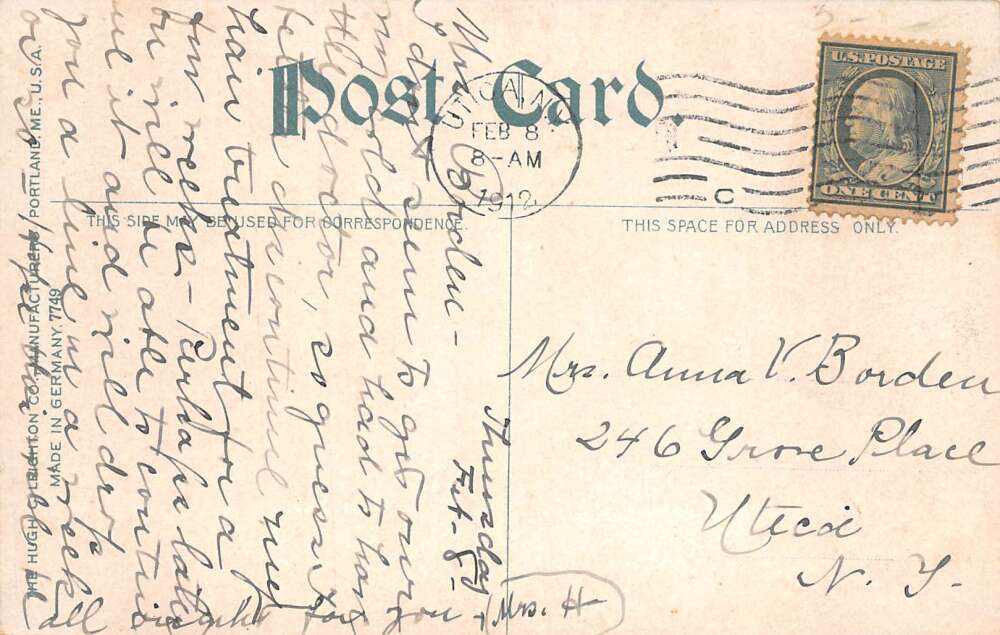 Post Card.
THIS SIDE MAY BE USED FOR CORRESPONDENCE.
THIS SPACE FOR ADDRESS ONLY.
THE HUGH C. LEIGHTON CO., MANUFACTURERS, PORTLAND, ME., U.S.A.
MADE IN GERMANY. 7749
UTICA, N.Y.
FEB 8
8-AM
1912
C
U.S. POSTAGE
ONE CENT
Thursday
Feb-8-
Mrs Borden -
I don't seem to get over
my cold and had to have
the doctor, so guess I
discontinue my
hair treatment for a
few weeks - Perhaps later
you will be able to continue
it and will drop
you a line, in a week
or so
all right for you -
Mrs. H-
Mrs. Anna V. Borden
246 Grove Place
Utica
N. Y.